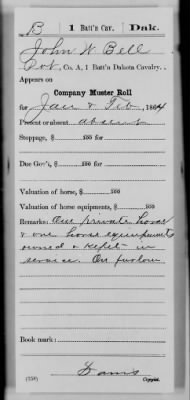 B | 1 Batt'n Cav. | Dak.
John W Bell
Pvt, Co. A, 1 Batt'n Dakota Cavalry.
Appears on
Company Muster Roll
for Jan & Feb, 1864
Present or absent absent
Stoppage, $ 100 for
Due Gov't, $ 100 for
Valuation of horse, $ 100
Valuation of horse equipments, $ 100
Remarks: One private horse
& one horse equipments
owned & kept in
service. On furlow
Book mark:
(358) Copyist.